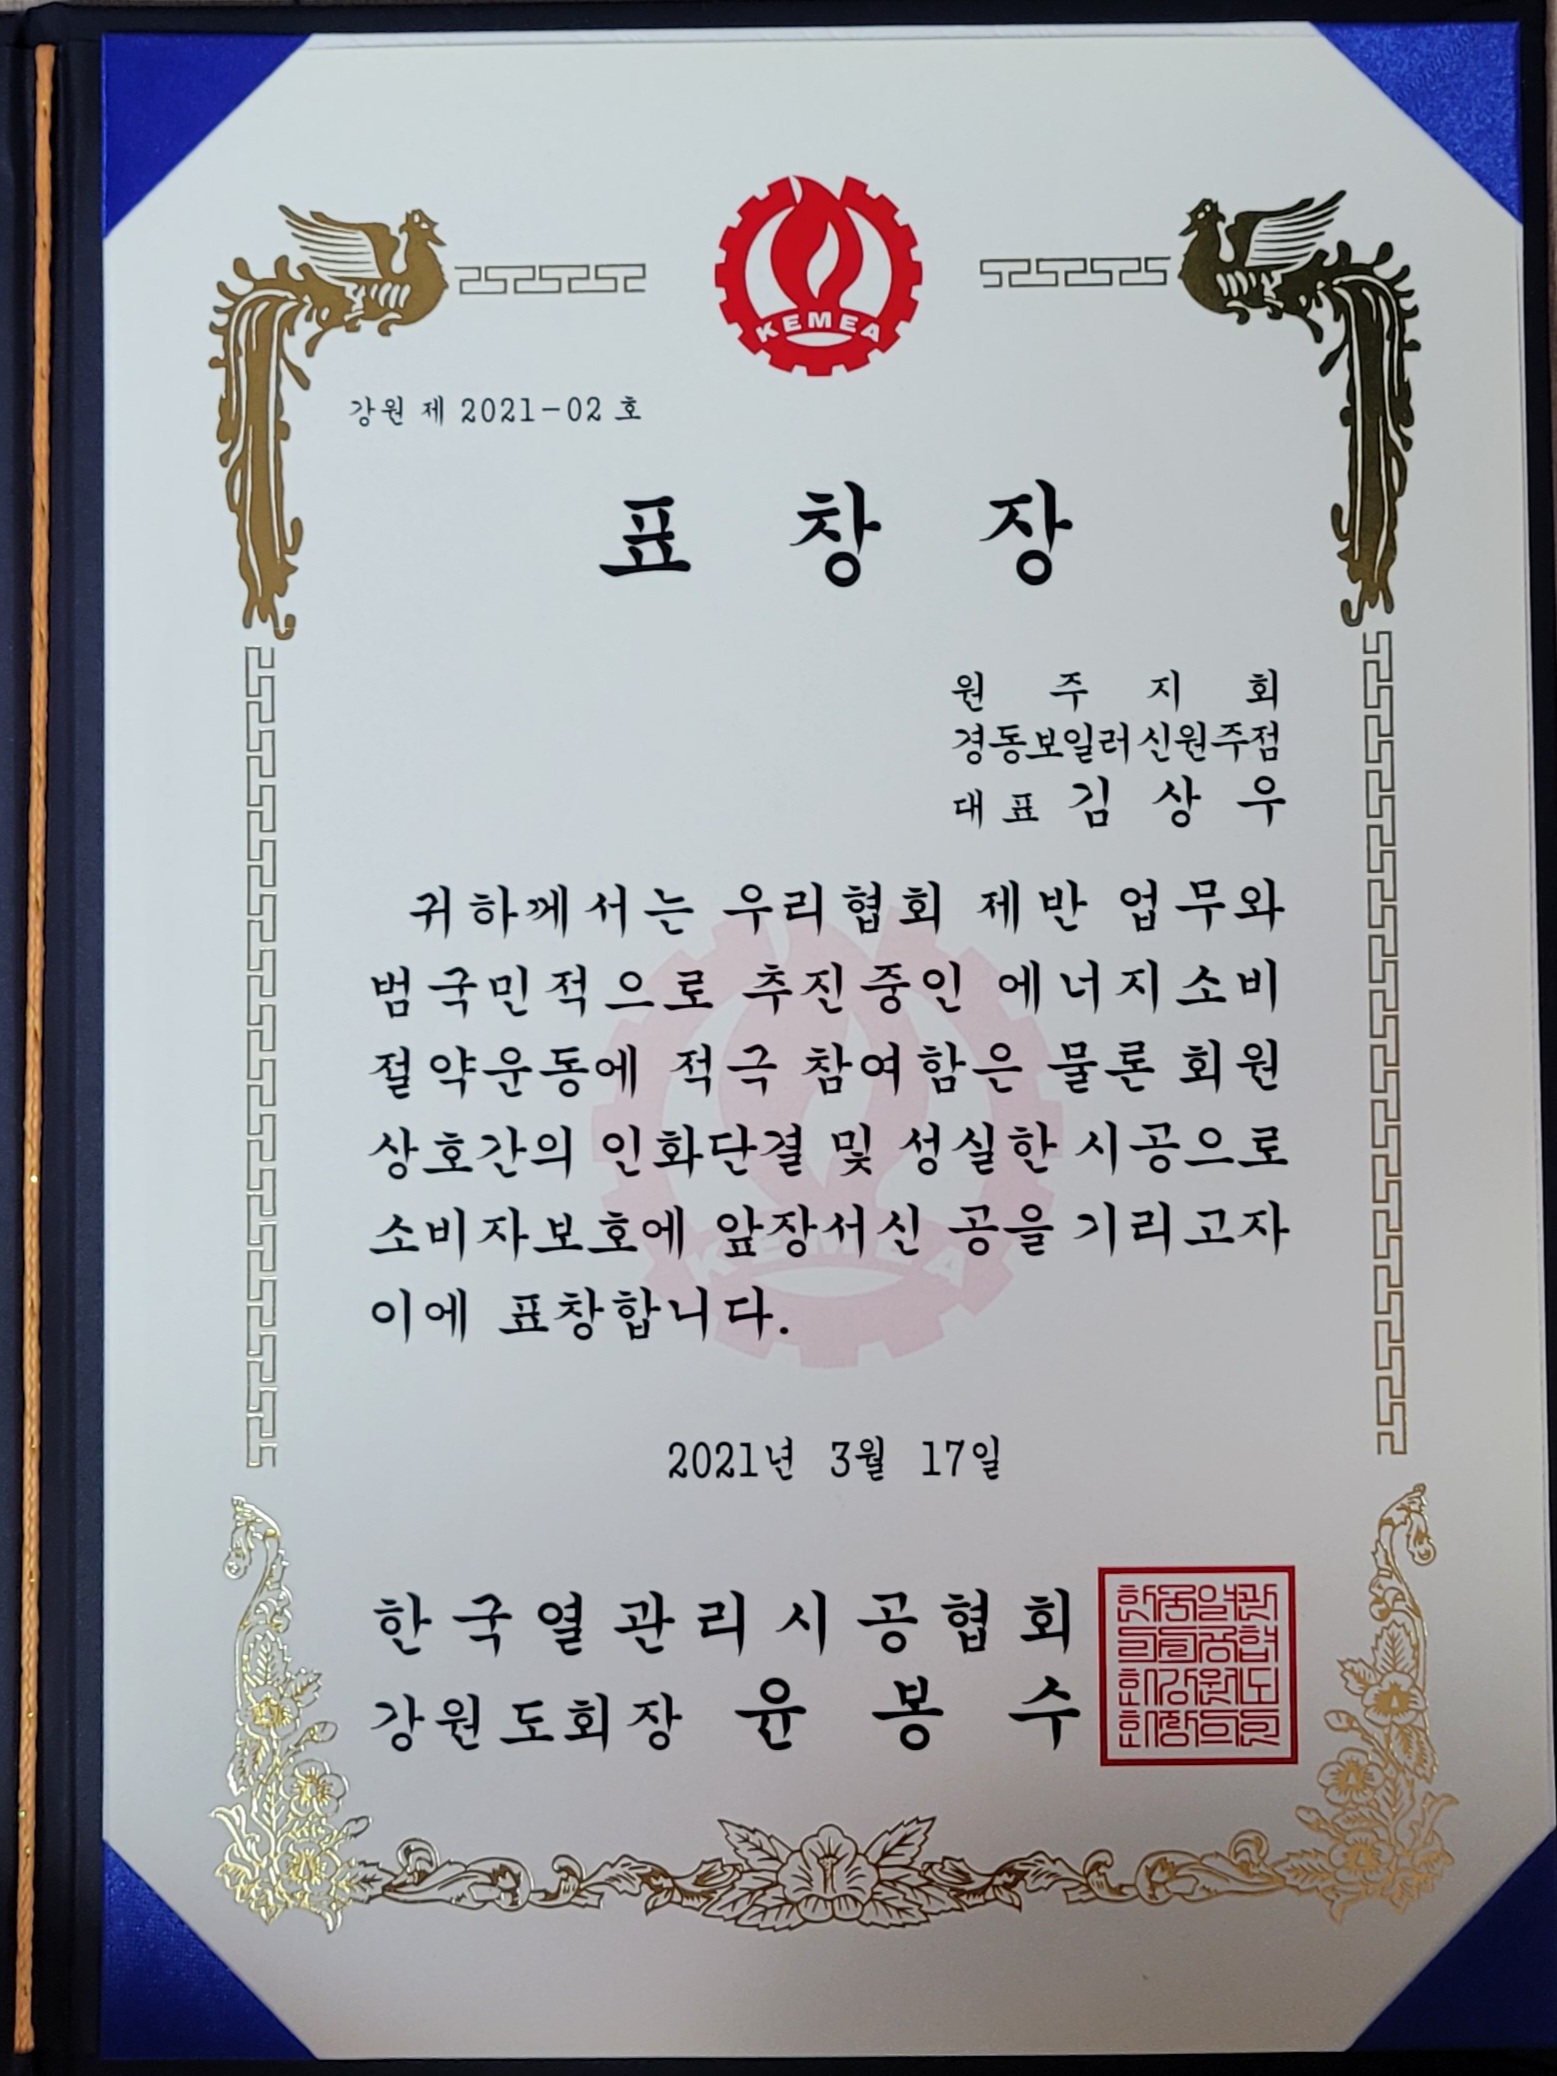 KEMEA
강원 제 2021-02 호
표 창 장
원 주 지 회
경동보일러신원주점
대표 김 상 우
귀하께서는 우리협회 제반 업무와
범국민적으로 추진중인 에너지소비
절약운동에 적극 참여함은 물론 회원
상호간의 인화단결 및 성실한 시공으로
소비자보호에 앞장서신 공을 기리고자
이에 표창합니다.
KEMEA
2021년 3월 17일
한국열관리시공협회
강원도회장 윤 봉 수